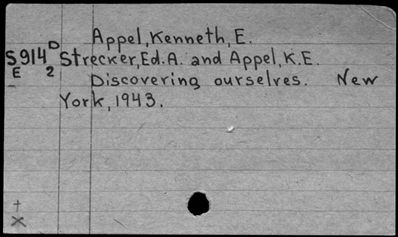 Appel, Kenneth, E.
S914D Strecker, Ed.A. and Appel, K.E.
E 2 Discovering ourselves. New
York, 1943.